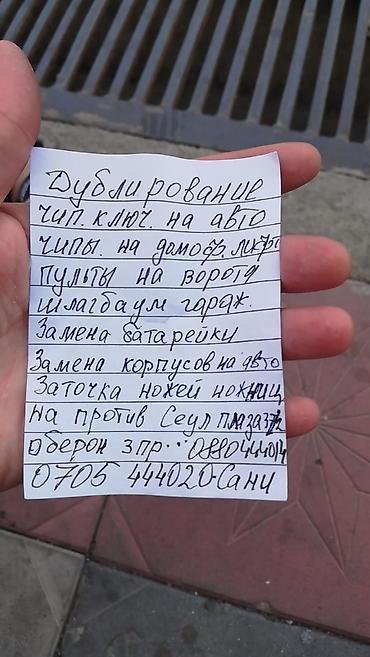 Дублирование
чип. ключ. на авто
чипы. на домоф.
пульты на ворота
шлагбаум гараж.
Замена батарейки
Замена корпусов на авто
Заточка ножей ножниц
на против Сеул плаза
оберон 3 пр... 0880444014
0705 444020-Сани